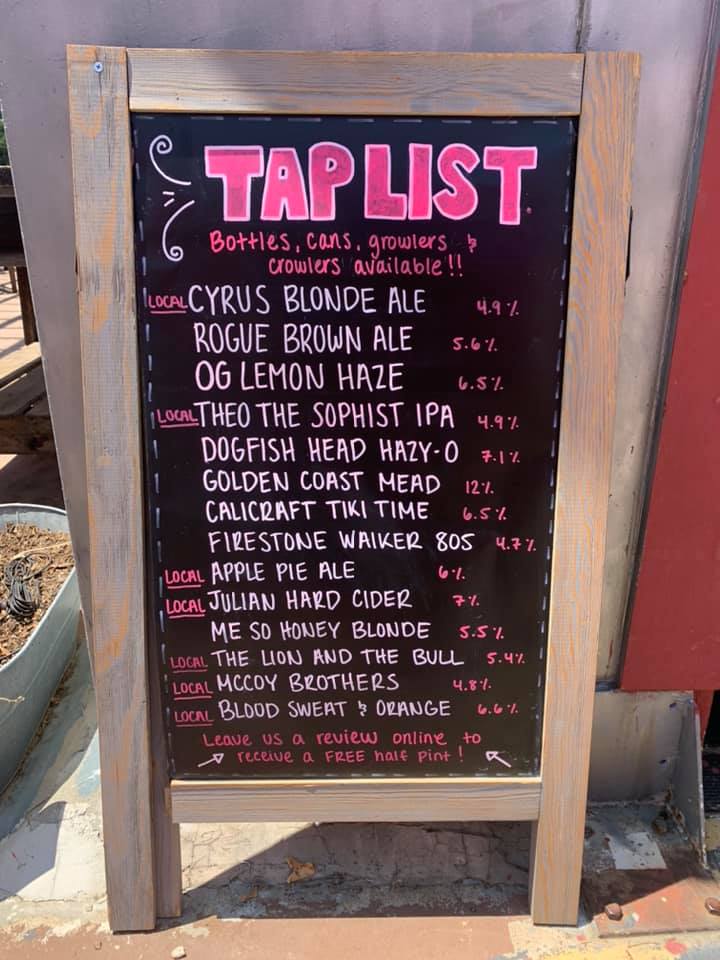 TAP LIST
Bottles, cans, growlers &
crowlers available!!
LOCAL CYRUS BLONDE ALE 4.9%
ROGUE BROWN ALE 5.6%
OG LEMON HAZE 6.5%
LOCAL THEO THE SOPHIST IPA 4.9%
DOGFISH HEAD HAZY-O 7.1%
GOLDEN COAST MEAD 12%
CALICRAFT TIKI TIME 6.5%
FIRESTONE WALKER 805 4.7%
LOCAL APPLE PIE ALE 6%
LOCAL JULIAN HARD CIDER 7%
ME SO HONEY BLONDE 5.5%
LOCAL THE LION AND THE BULL 5.4%
LOCAL MCCOY BROTHERS 4.8%
LOCAL BLOOD SWEAT & ORANGE 6.6%
Leave us a review online to
receive a FREE half pint!